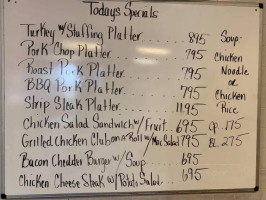 Todays Specials
Turkey w/ Stuffing Platter ... 895
Pork Chop Platter ... 795
Roast Pork Platter ... 795
BBQ Pork Platter ... 795
Strip Steak Platter ... 1195
Chicken Salad Sandwich w/ Fruit ... 695
Grilled Chicken Club on a Roll w/ Mac Salad 795
Bacon Chedder Burger w/ Soup 695
Chicken Cheese Steak w/ Potato Salad ... 695
Soup-
Chicken
Noodle
or
Chicken
Rice
Cp .175
BL 275